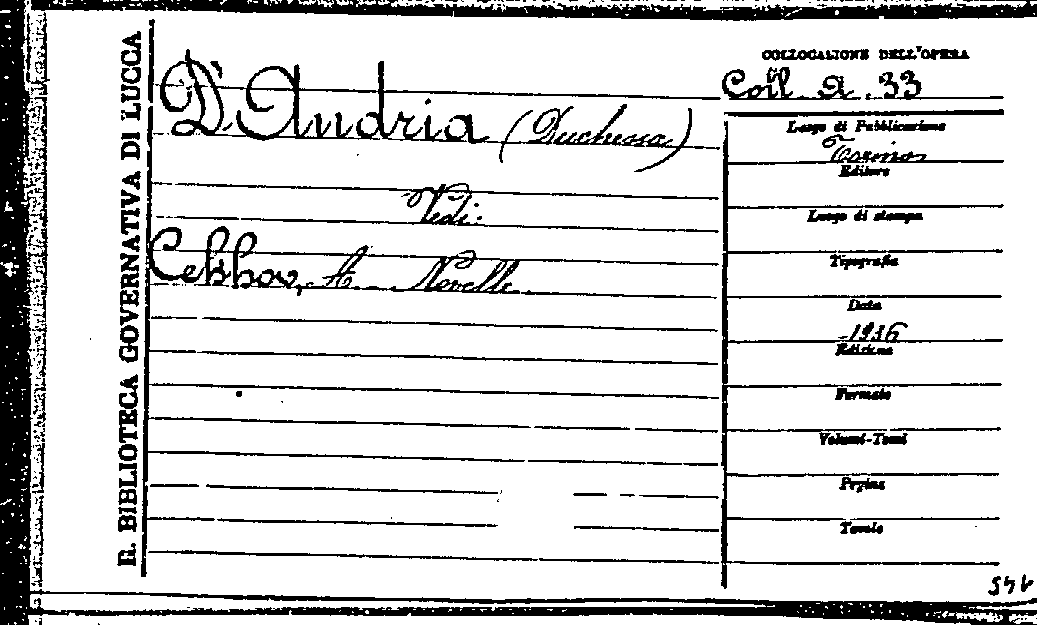 R. BIBLIOTECA GOVERNATIVA DI LUCCA
D'Andria (Duchessa)
Vedi:
Cekhov, A. Novelle.
COLLOCAZIONE DELL'OPERA
Coll. A. 33
Luogo di Pubblicazione
Torino
Editore
Luogo di stampa
Tipografia
Data
1936
Edizione
Formato
Volumi-Tomi
Pagine
Tavole